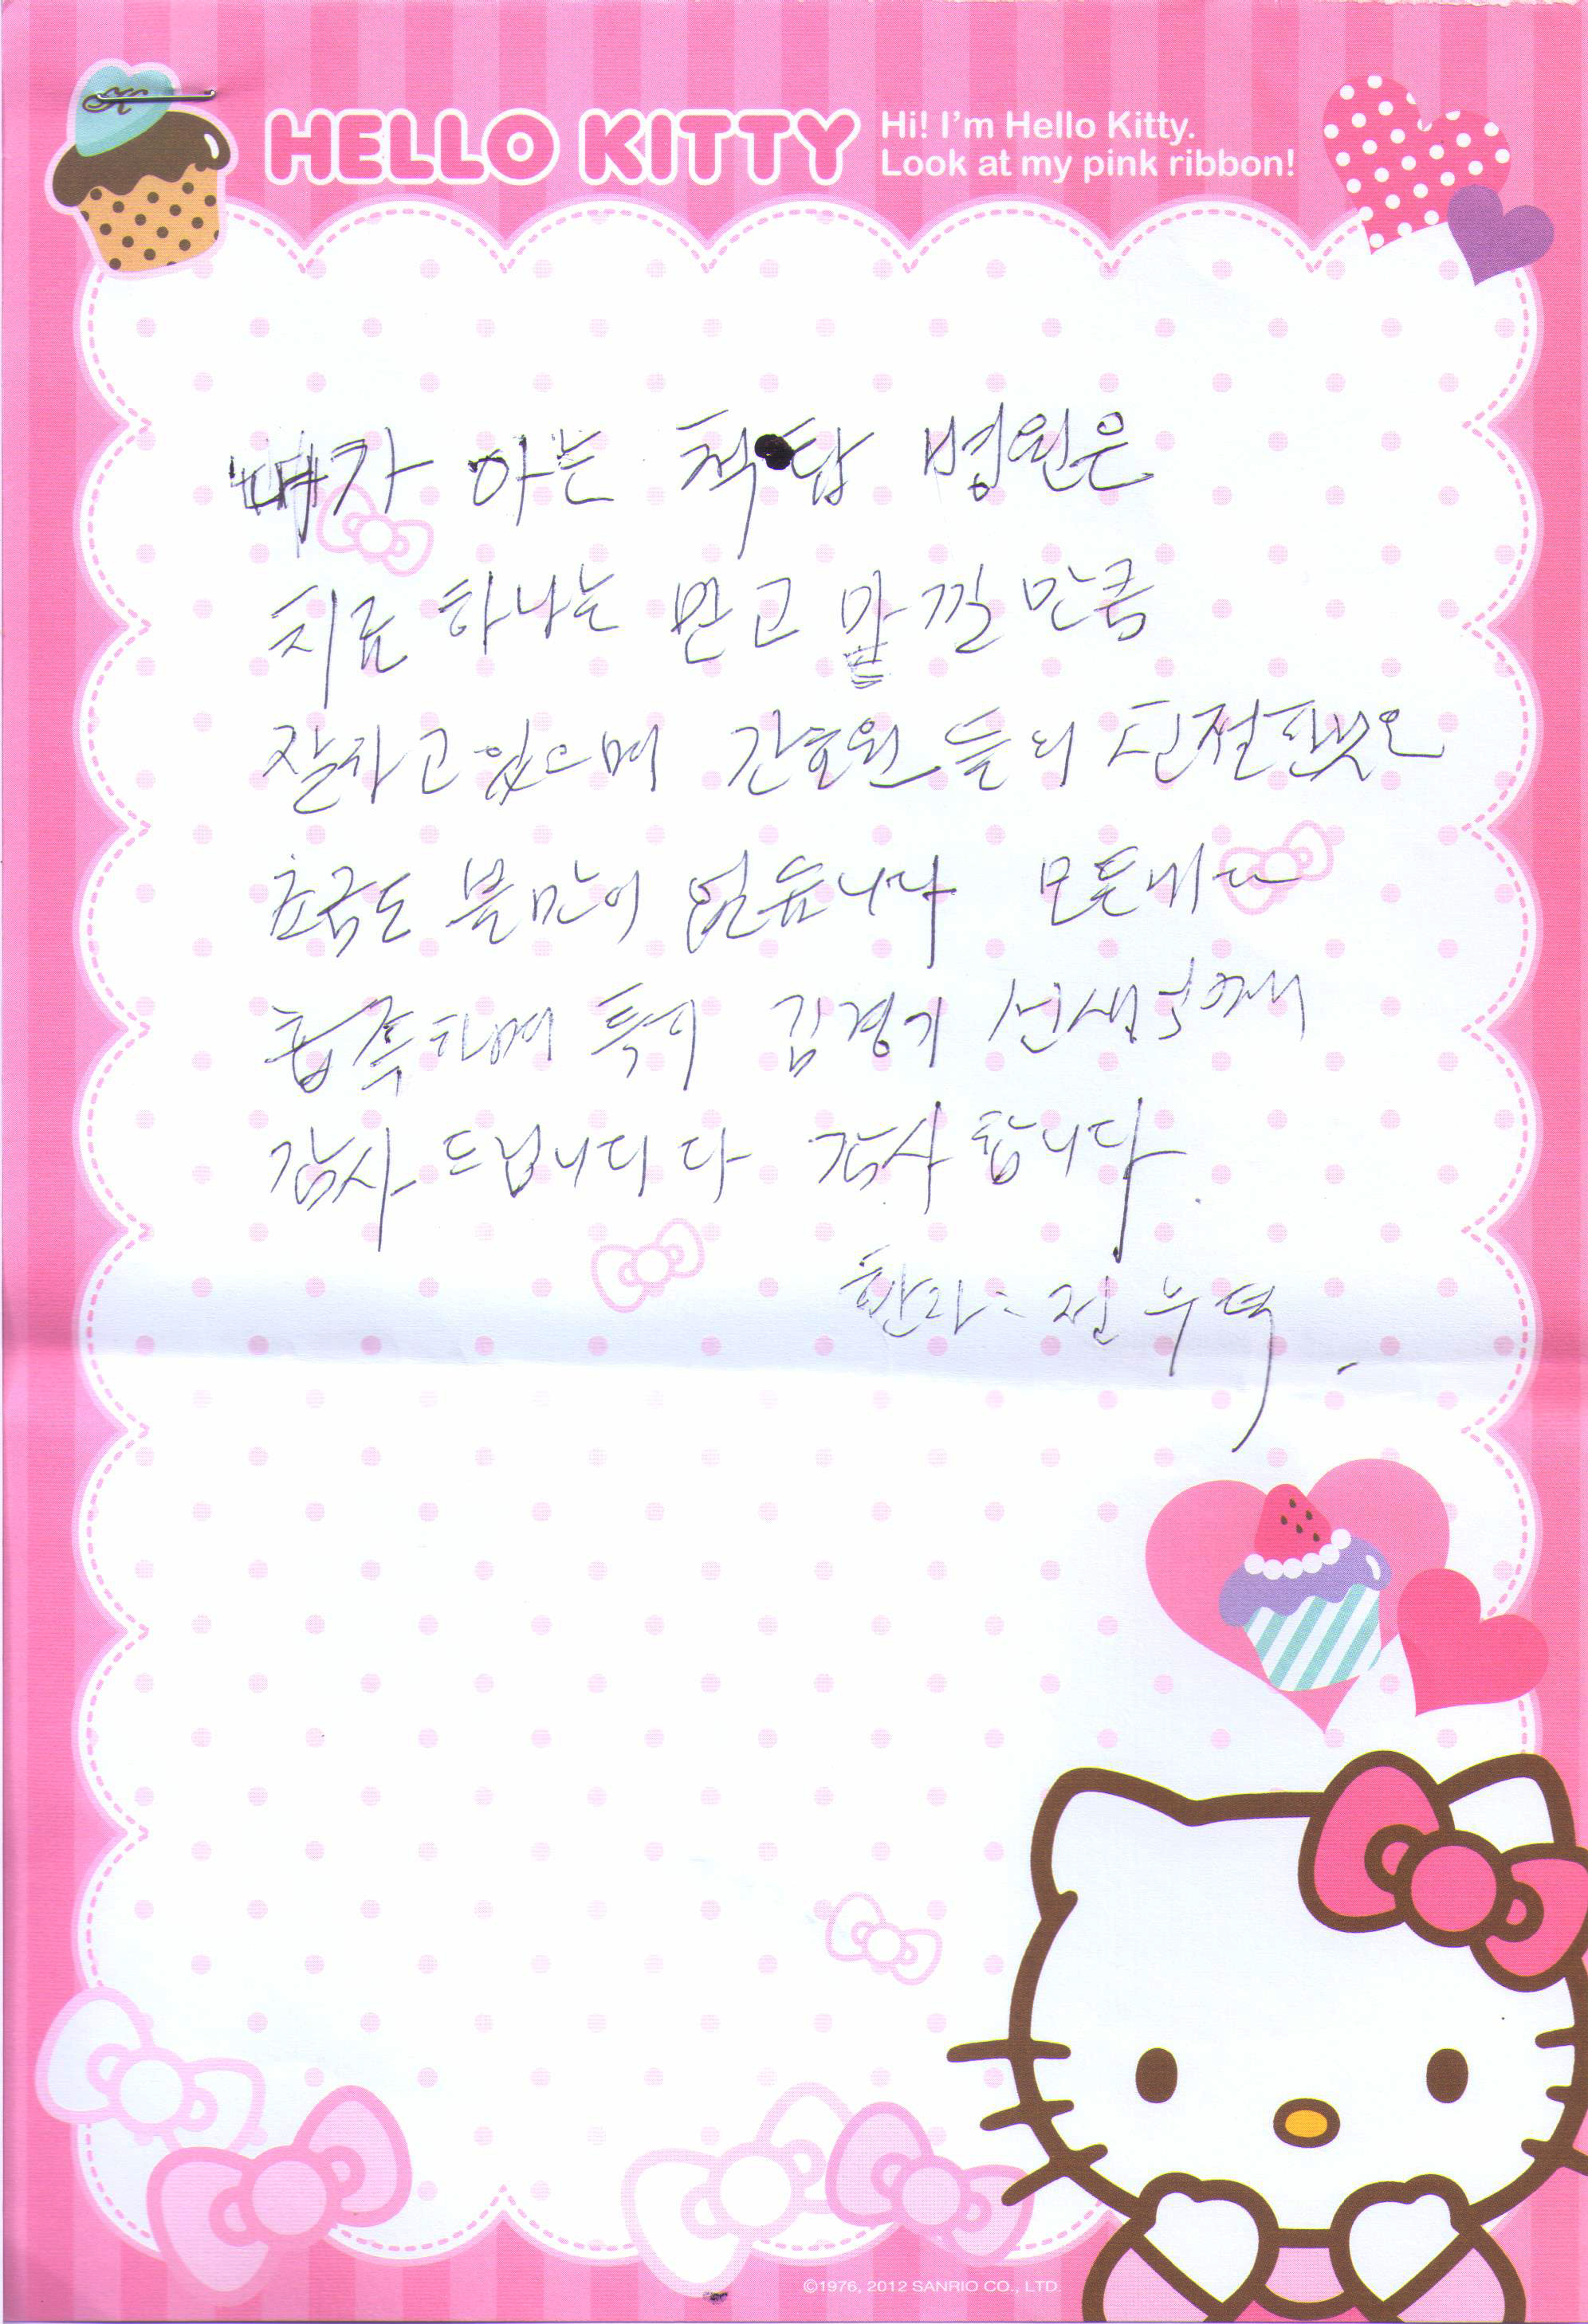 HELLO KITTY
Hi! I'm Hello Kitty.
Look at my pink ribbon!
내가 아는 척탑 병원은
치료 하나는 믿고 맡낄 만큼
잘하고 있으며 간호원들의
조금도 불만이 없습니다 모든
흡족하며 특히 김경기 선생님께
감사 드립니다 감사합니다
환자: 전
©1976, 2012 SANRIO CO., LTD.